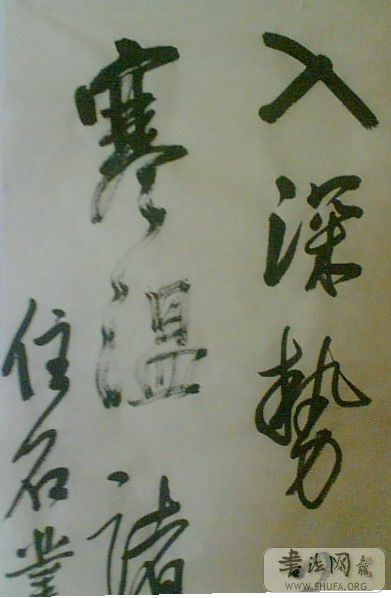 入深勢
寒温諸
住名業
書法网
WWW.SHUFA.ORG